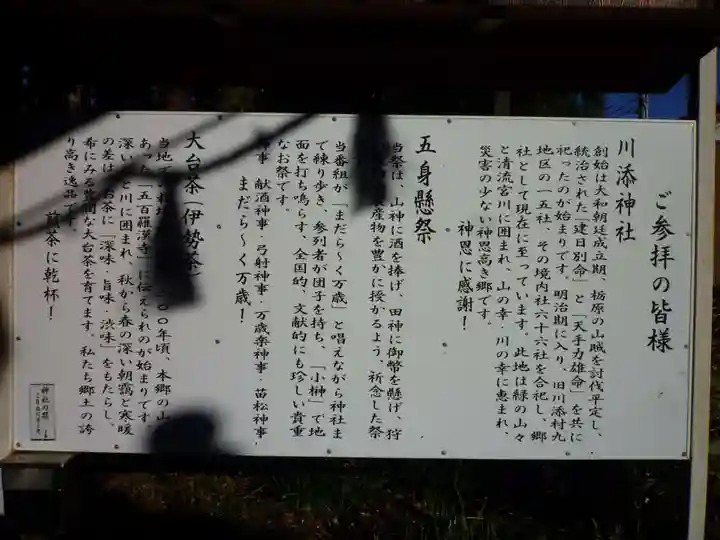 ご参拝の皆様
川添神社
創始は大和朝廷成立期、栃原の山賊を討伐平定し、
統治された「建日別命」と「天手力雄命」を共に
祀ったのが始まりです。明治期に入り、旧川添村九
地区の一五社、その境内社六十六社を合祀し、郷
社として現在に至っています。此地は緑の山々
と清流宮川に囲まれ、山の幸・川の幸に恵まれ、
災害の少ない神恩高き郷です。
神恩に感謝!
五身懸祭
当祭は、山神に酒を捧げ、田神に御幣を懸げ、狩
産物を豊かに授かるよう、祈念した祭
当番組が「まだら〜く万歳」と唱えながら神社ま
で練り歩き、参列者が団子を持ち、「小榊」で地
面を打ち鳴らす、全国的、文献的にも珍しい貴重
なお祭です。
神事・献酒神事・弓射神事・万歳楽神事・苗松神事・
まだら〜く万歳!
大台茶(伊勢茶)
当地で 〇〇年頃、本郷の山
あった「五百羅漢寺」に伝えられのが始まりです
深い と川に囲まれ、秋から春の深い朝靄と寒暖
の差は お茶に「深味・旨味・渋味」をもたらし、
希にみる豊潤な大台茶を育てます。私たち郷土の誇
り高き逸品です。
煎茶に乾杯!
神社の森